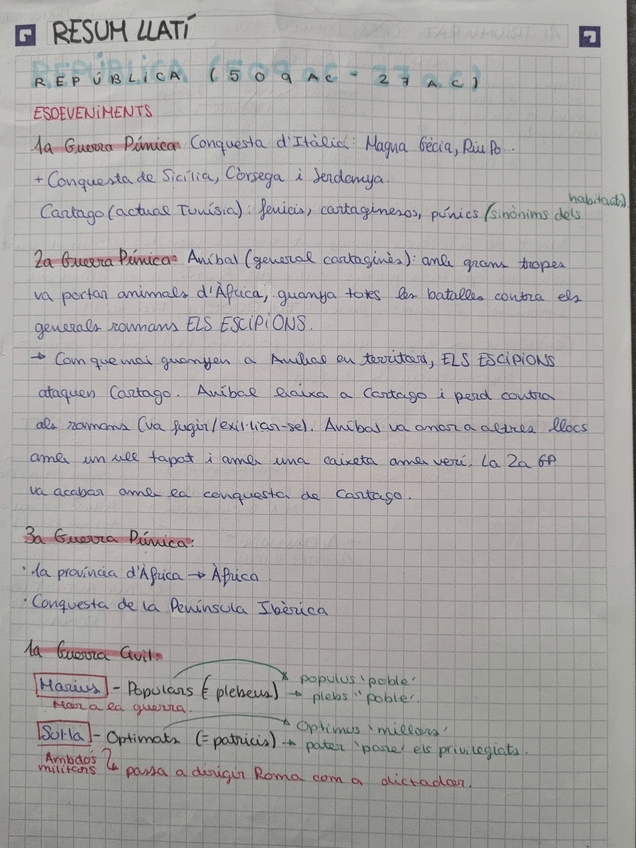 RESUM LLATÍ
REPÚBLICA (509 AC - 27 AC)
ESDEVENIMENTS
1a Guerra Púnica: Conquesta d'Itàlia: Magna Gècia, Riu Po...
+ Conquesta de Sicília, Còrsega i Serdenya.
Cartago (actual Tunísia): fenicis, cartaginesos, púnics (sinònims dels habitants)
2a Guerra Púnica: Aníbal (general cartaginès): amb grans tropes
va portar animals d'Àfrica, guanya totes les batalles contra els
generals romans ELS ESCIPIONS.
→ Com que mai guanyen a Aníbal en territori, ELS ESCIPIONS
ataquen Cartago. Aníbal baixa a Cartago i perd contra
als romans (va fugir/exil·liar-se). Aníbal va anar a altres llocs
amb un ull tapat i amb una caixeta amb verí. La 2a GP
va acabar amb la conquesta de Cartago.
3a Guerra Púnica:
· 1a província d'Àfrica → Àfrica
· Conquesta de la Península Ibèrica
1a Guerra Civil:
Marius - Populars (= plebeus) → populus 'poble'
→ plebs "poble".
Mor a la guerra.
Sul·la - Optimats (= patricis) → Optimus 'millors'
→ pater 'pare' els privilegiats.
Ambdós militars
↳ passa a dirigir Roma com a dictador.